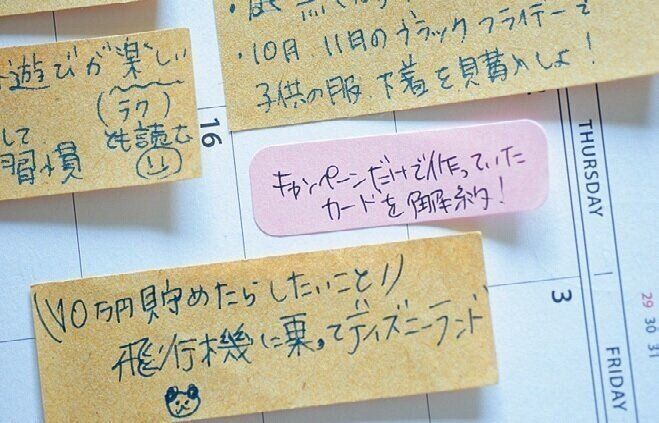 ・10月、11月のブラックフライデーで
子供の服、下着を買替えしよ！
遊びが楽しい
(ラク)
して
習慣 とも読む
16
キャンペーンだけで作っていた
カードを解約！
THURSDAY
\\10万円貯めたらしたいこと//
飛行機に乗ってディズニーランド
3
29
30
31
FRIDAY